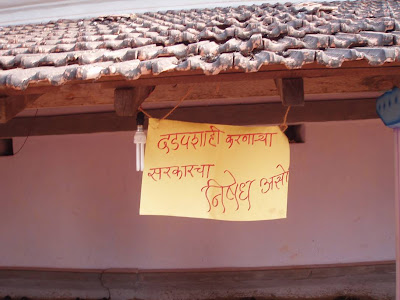 दडपशाही करनाऱ्या
सरकारचा
निषेध असो